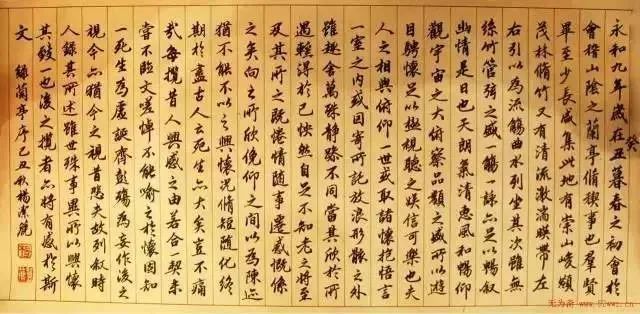 永和九年歲在癸丑暮春之初會於
會稽山陰之蘭亭脩稧事也群賢
畢至少長咸集此地有崇山峻領
茂林脩竹又有清流激湍暎帶左
右引以為流觴曲水列坐其次雖無
絲竹管弦之盛一觴一詠亦足以暢叙
幽情是日也天朗氣清惠風和暢仰
觀宇宙之大俯察品類之盛所以遊
目騁懷足以極視聽之娛信可樂也夫
人之相與俯仰一世或取諸懷抱悟言
一室之内或因寄所託放浪形骸之外
雖趣舍萬殊靜躁不同當其欣於所
遇蹔得於己怏然自足不知老之將至
及其所之既惓情隨事遷感慨係
之矣向之所欣俛仰之間以為陳迹
猶不能不以之興懷況脩短隨化終
期於盡古人云死生亦大矣豈不痛
哉每攬昔人興感之由若合一契未
嘗不臨文嗟悼不能喻之於懷固知
一死生為虛誕齊彭殤為妄作後之
視今亦猶今之視昔悲夫故列叙時
人錄其所述雖世殊事異所以興懷
其致一也後之攬者亦將有感於斯
文 錄蘭亭序己丑秋楊潔